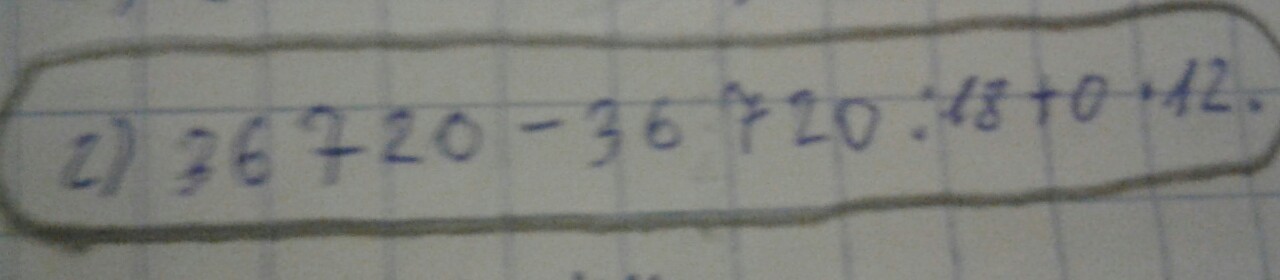 2) 36 720 - 36 720 : 18 + 0 · 12.